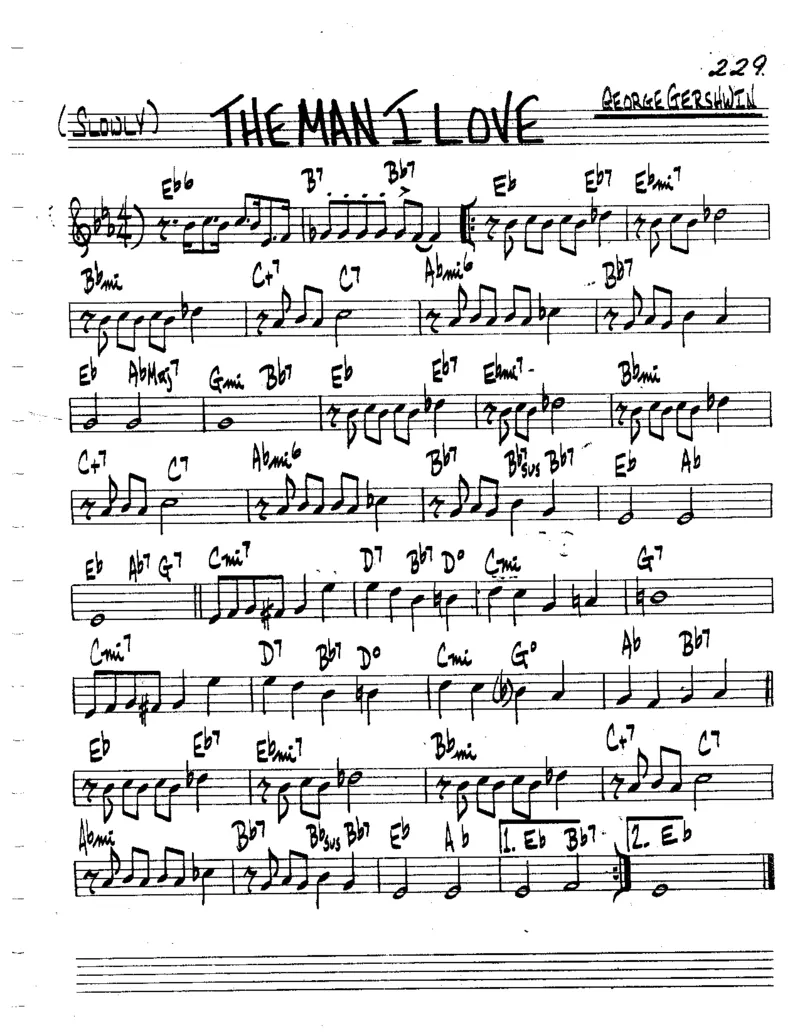 229.
(SLOWLY) THE MAN I LOVE GEORGE GERSHWIN
Eb6 B7 Bb7 Eb Eb7 Ebmi7
Bbmi C+7 C7 Abmi6 Bb7
Eb AbMaj7 Gmi Bb7 Eb Eb7 Ebmi7 Bbmi
C+7 C7 Abmi6 Bb7 Bb7sus Bb7 Eb Ab
Eb Ab7 G7 Cmi7 D7 Bb7 D° Cmi G7
Cmi7 D7 Bb7 D° Cmi G° Ab Bb7
Eb Eb7 Ebmi7 Bbmi C+7 C7
Abmi Bb7 Bbsus Bb7 Eb Ab 1. Eb Bb7 2. Eb